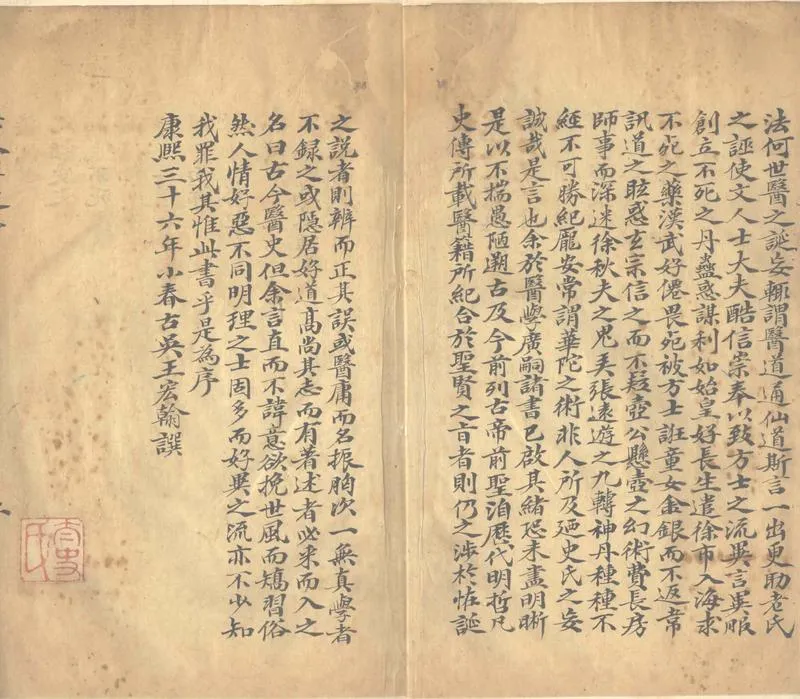 法何世醫之誕妄輙謂醫道通仙道斯言一出更助老氏
之誣使文人士大夫酷信崇奉以致方士之流異言異服
創立不死之丹蠱惑謀利如始皇好長生遣徐市入海求
不死之藥漢武好僊畏死被方士誑童女金銀而不返常
訊道之眩惑玄宗信之而不疑壺公懸壺之幻術費長房
師事而深迷徐秋夫之鬼張遠遊之九轉神丹種種不
經不可勝紀龐安常謂華陀之術非人所及廼史氏之妄
誠哉是言也余於醫學廣嗣諸書已啟其緒恐未盡明晰
是以不揣愚陋遡古及今前列古帝前聖洎歷代明哲凡
史傳所載醫籍所紀合於聖賢之旨者則仍之涉於恠誕
之說者則辨而正其誤或醫庸而名振胸次一無真學者
不錄之或隱居好道高尚其志而有著述者必采而入之
名曰古今醫史但余言直而不諱意欲挽世風而矯習俗
然人情好惡不同明理之士固多而好異之流亦不少知
我罪我其惟此書乎是為序
康熙三十六年小春古吳王宏翰譔